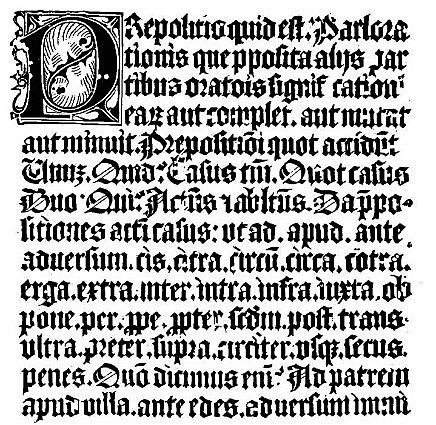 PRepositio quid est? Pars ora
tionis que pposita alijs par
tibus oratōis significationē
earū aut complet. aut mutat
aut minuit. Prepositiōi quot accidūt?
Unū. Quid? Casus tm̄. Quot casus
Duo Qui? Actūs ⁊ ablt̄us. Da p̄po-
sitiones acti casus: ut ad. apud. ante
aduersum. cis. citra. circū. circa. cōtra.
erga. extra. inter. intra. infra. iuxta. ob
pone. per. ꝓpe. ꝓpter. scd̄m. post. trans.
vltra. preter. supra. circiter. vsqꝫ. secus.
penes. Quō dicimus eni? Ad patrem
apud villa. ante edes. aduersum inimi